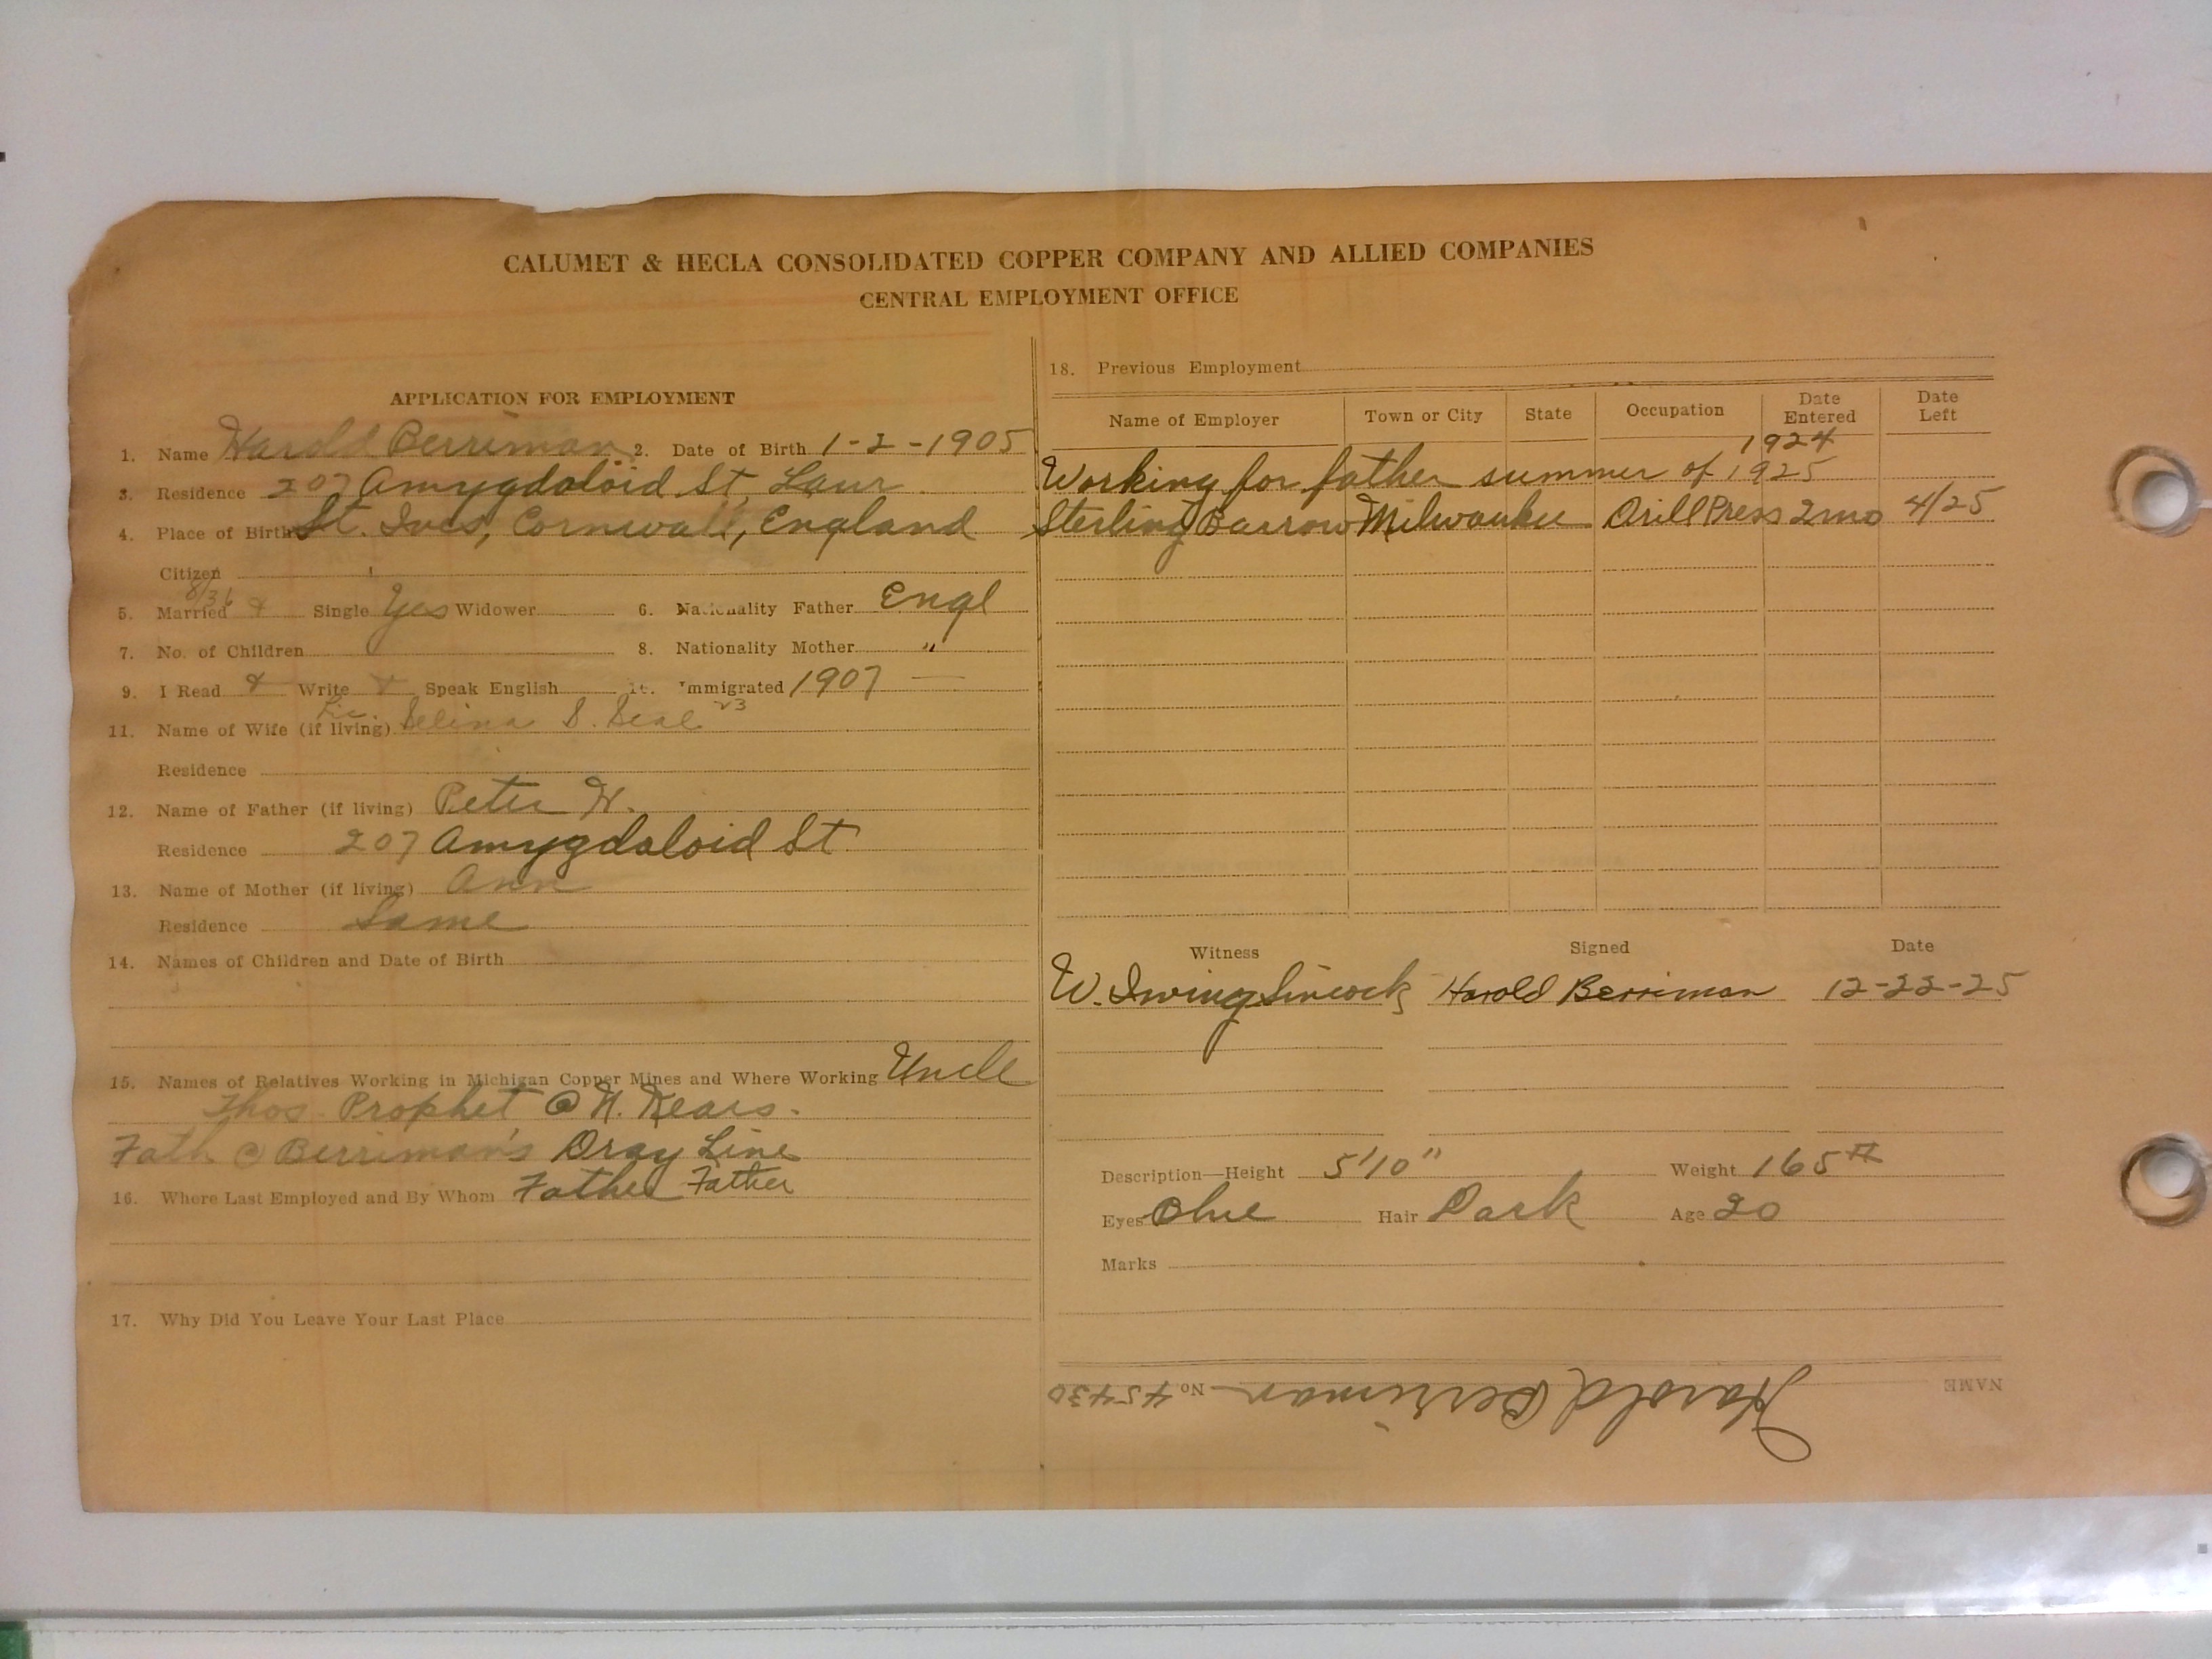 CALUMET & HECLA CONSOLIDATED COPPER COMPANY AND ALLIED COMPANIES
CENTRAL EMPLOYMENT OFFICE
APPLICATION FOR EMPLOYMENT
1. Name Harold Berriman 2. Date of Birth 1-2-1905
3. Residence 207 Amygdaloid St, Laur
4. Place of Birth St. Ives, Cornwall, England
Citizen
8/36
5. Married x Single Yes Widower 6. Nationality Father Engl
7. No. of Children 8. Nationality Mother "
9. I Read x Write x Speak English 10. Immigrated 1907 —
Lic. 23
11. Name of Wife (if living) Selina S. Seal
Residence
12. Name of Father (if living) Peter W.
Residence 207 Amygdaloid St
13. Name of Mother (if living) Ann
Residence Same
14. Names of Children and Date of Birth
15. Names of Relatives Working in Michigan Copper Mines and Where Working Uncle
Thos. Prophet @ N. Kears.
Fath @ Berriman's Dray Line
16. Where Last Employed and By Whom Father Father
17. Why Did You Leave Your Last Place
18. Previous Employment
Name of Employer Town or City State Occupation Date Entered Date Left
1924
Working for father summer of 1925
Sterling Barrow Milwaukee Drill Press 2mo 4/25
Witness Signed Date
W. Irwing Sincock Harold Berriman 12-22-25
Description—Height 5'10" Weight 165#
Eyes Blue Hair Dark Age 20
Marks
NAME Harold Berriman No 45430